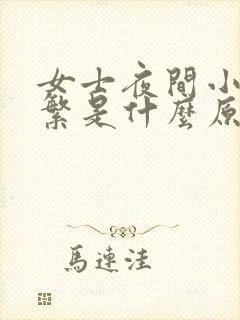 女士夜間小
繁是什麼原
馬連洼